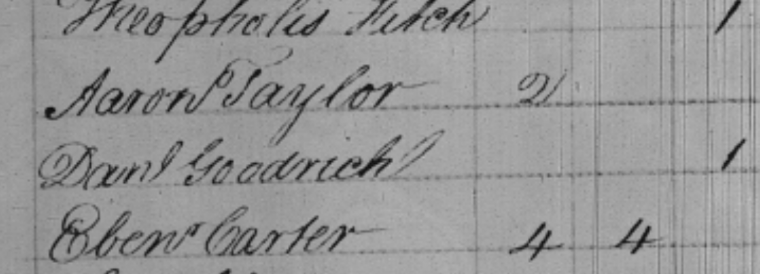 Theophalis Fitch 1
Aaron Taylor 2
Danl Goodrich 1
Ebenr Carter 4 4